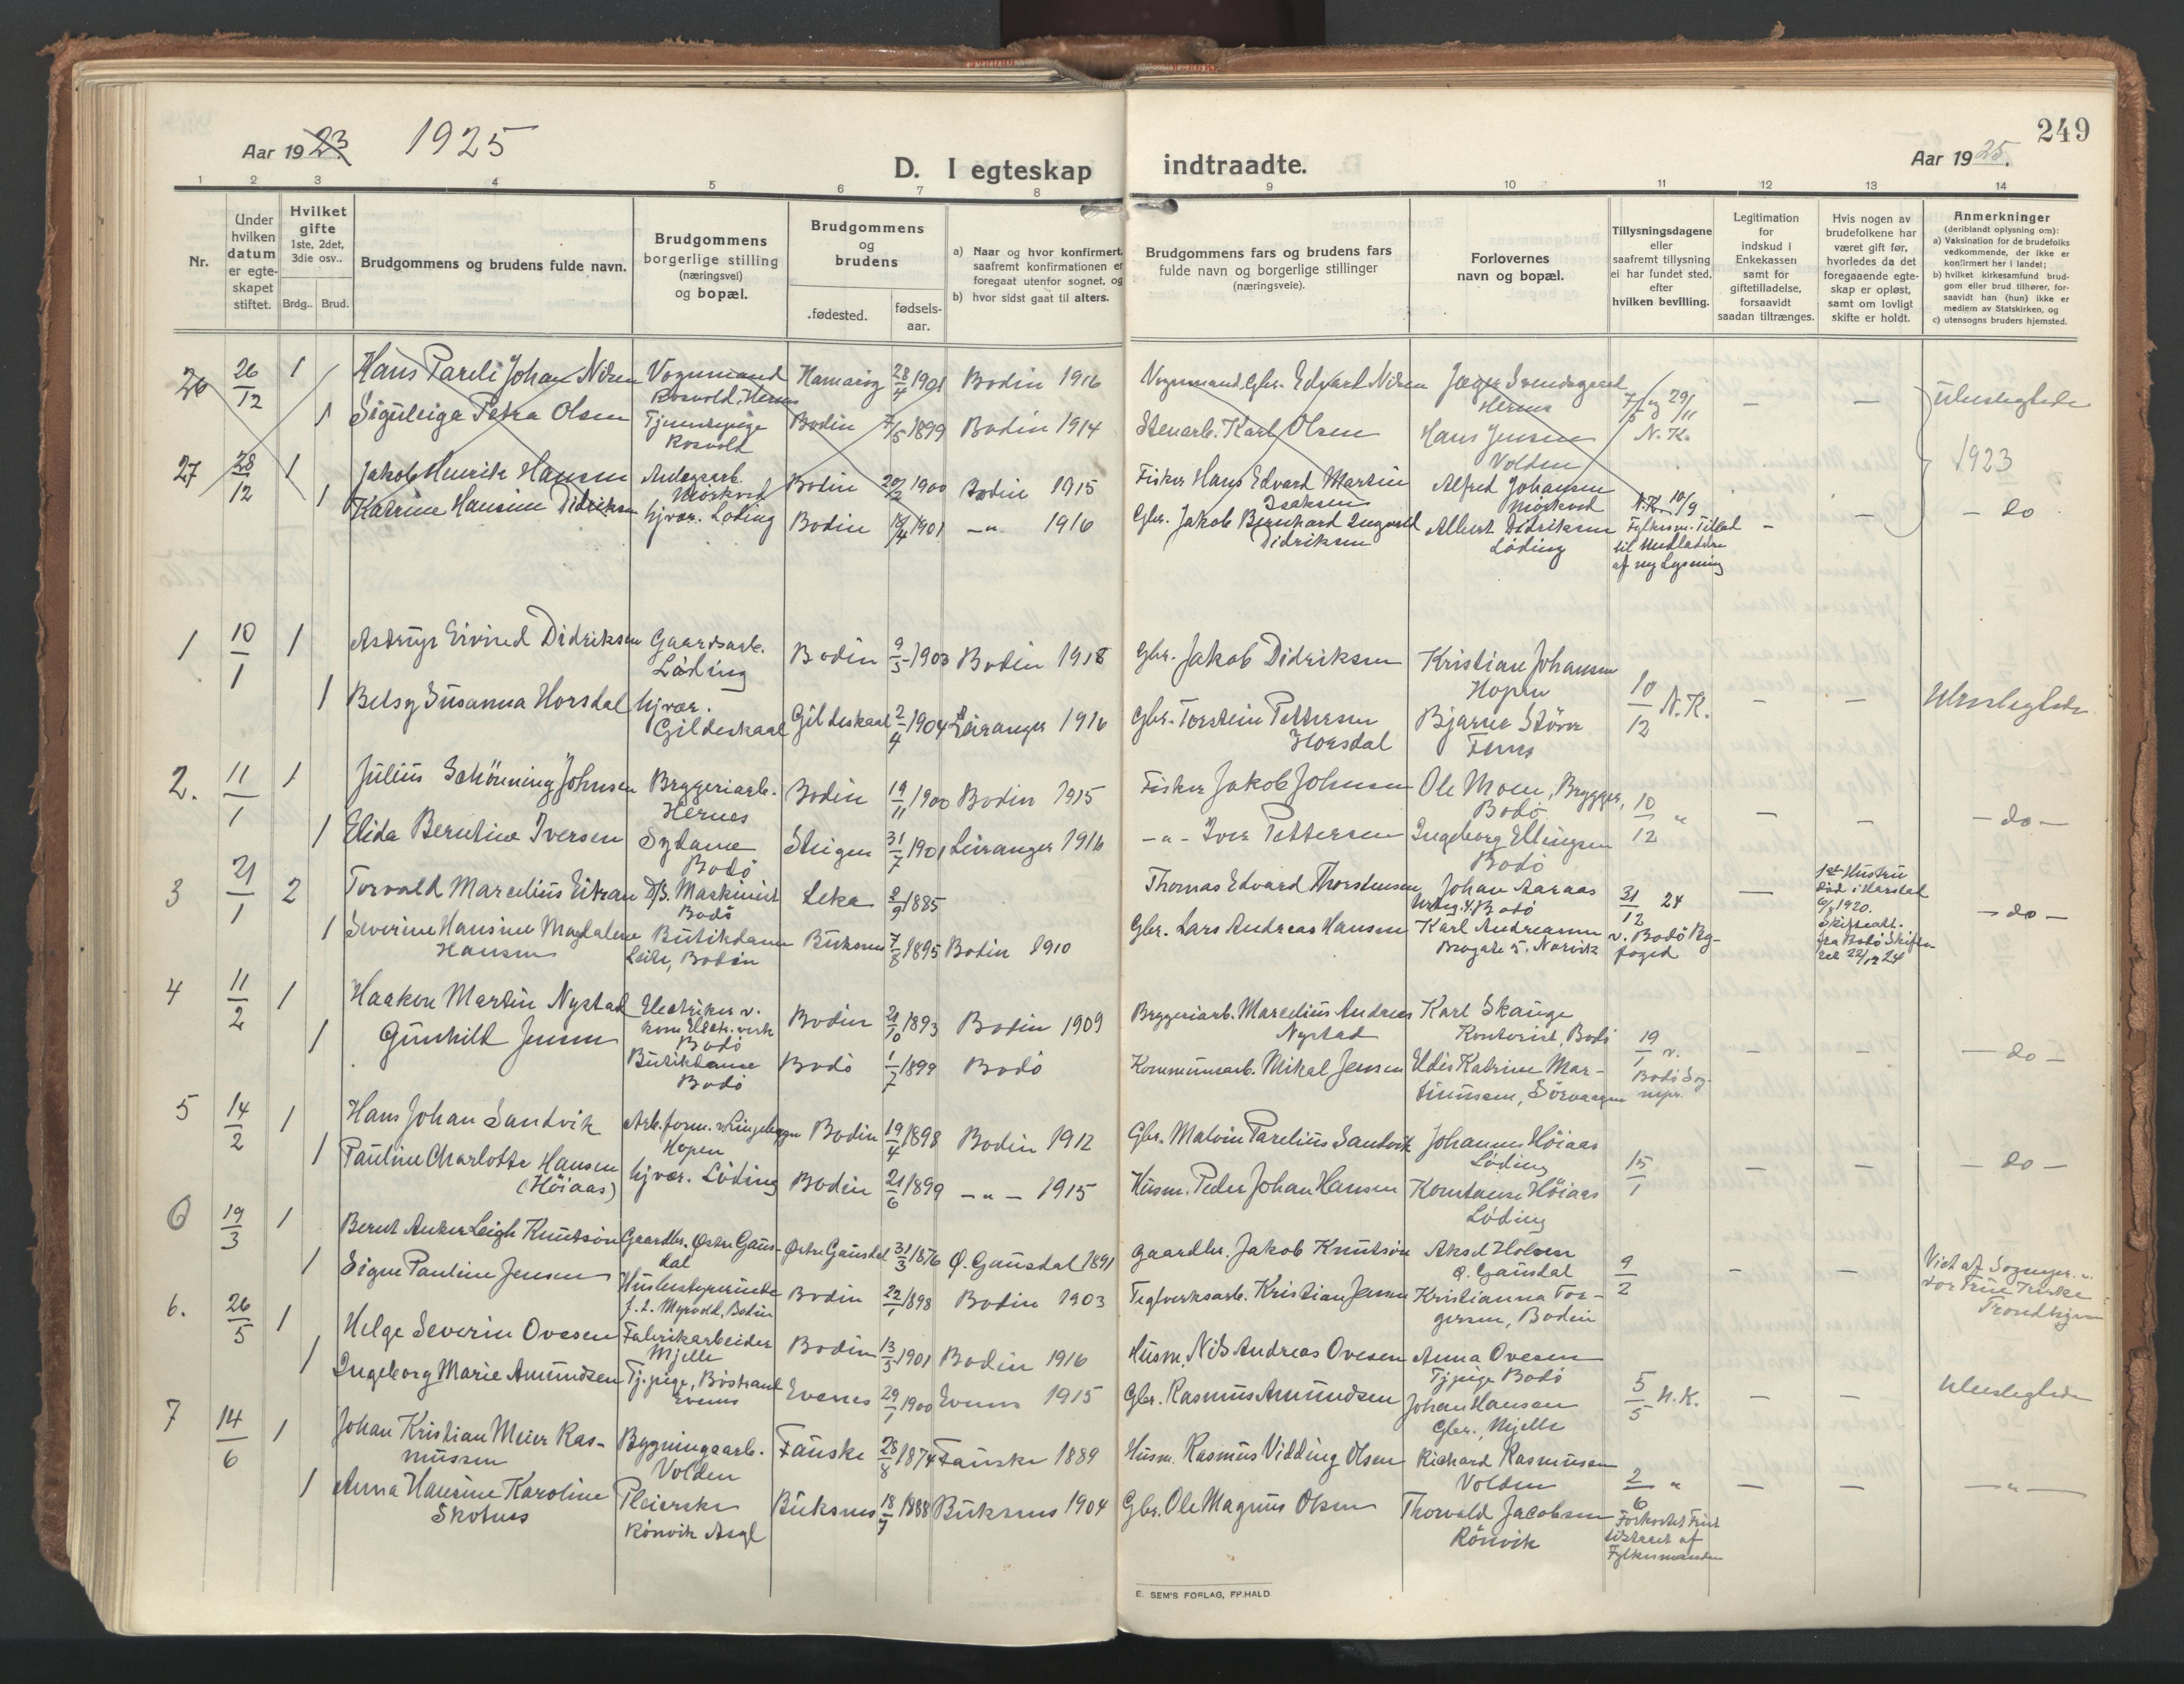 249
Aar 1923 1925
D. I egteskap indtraadte.
Aar 1925.
1 2 3 4 5 6 7 8 9 10 11 12 13 14
Nr.
Under hvilken datum er egteskapet stiftet.
Hvilket gifte
1ste, 2det, 3die osv..
Brdg.. Brud.
Brudgommens og brudens fulde navn.
Brudgommens borgerlige stilling (næringsvei) og bopæl.
Brudgommens og brudens
fødested. fødsels-aar.
a) Naar og hvor konfirmert, saafremt konfirmationen er foregaat utenfor sognet, og
b) hvor sidst gaat til alters.
Brudgommens fars og brudens fars
fulde navn og borgerlige stillinger
(næringsveie).
Forlovernes
navn og bopæl.
Tillysningsdagene
eller
saafremt tillysning
ei har fundet sted,
efter
hvilken bevilling.
Legitimation
for
indskud i
Enkekassen
samt for
giftetilladelse,
forsaavidt
saadan tiltrænges.
Hvis nogen av
brudefolkene har
været gift før,
hvorledes da det
foregaaende egte-
skap er opløst,
samt om lovligt
skifte er holdt.
Anmerkninger
(deriblandt oplysning om):
a) Vaksination for de brudefolks
vedkommende, der ikke er
konfirmert her i landet;
b) hvilket kirkesamfund brud-
gom eller brud tilhører, for-
saavidt han (hun) ikke er
medlem av Statskirken, og
c) utensogns bruders hjemsted.
26 26/12 1 Hans Pareli Johan Nilsen Vognmand Rosvold, Hernes Hamarøy 28/4 1901 Bodin 1916 Vognmand, Gbr. Edvard Nilsen Hernes 29/11 — — Utenslegtede
1 Petra Olsen Tjenestepige Rosvold Bodin 7/5 1899 Bodin 1914 Stenarb. Karl Olsen Hans Jensen Volden N.K. 1923
27 28/12 1 Jakob Henrik Hansen Mörkved Bodin 1900 Bodin 1915 Fisker Hans Edvard Martin Isaksen Alfred Johansen Mörkved N.K. 10/9 - — - do
1 Katrine Hansine Didriksen hjvær. Löding Bodin 1901 -"- 1916 Gbr. Jakob Bernhard Ingvard Didriksen Albert Didriksen Löding Fylkesm. Tillad til Undladelse af ny Lysning
1 10/1 1 Astrup Eivind Didriksen Gaardsarb. Löding Bodin 9/5 1903 Bodin 1918 Gbr. Jakob Didriksen Kristian Johansen Hopen 10/12 N.K. — — Utenslegtede
1 Betsy Susanna Horsdal hjvær. Gildeskaal Gildeskaal 2/4 1904 Leiranger 1916 Gbr. Torstein Pettersen Horsdal Bjarne Större
2. 11/1 1 Julius Schönning Johnsen Bryggeriarb. Hernes Bodin 19/11 1900 Bodin 1915 Fisker Jakob Johnsen Ole Moen, Brygger, Bodö 10/12 " — — - do -
1 Elida Berntine Iversen Sydame Bodö Steigen 31/7 1901 Leiranger 1916 -"- Iver Pettersen Ingeborg Ellingsen Bodö
3 21/1 2 Torvald Marcelius Eitran D/S. Maskinist Bodö Leka 2/9 1885 Thomas Edvard Thorstensen Johan Aaraas Bodö 31/12 24 v. Bodö Byfoged — 1ste Hustru död i Harstad 1920. Skifteatt. fra Bodö Skifteret 22/12 24 - do -
1 Severine Hansine Magdalene Hansen Butikdame Leite, Bodin Buksnes 7/8 1895 Bodin 1910 Gbr. Lars Andreas Hansen Karl Andreassen Brogate 5. Narvik
4 11/2 1 Haakon Martin Nystad Electriker v. kom. Electr. verk Bodö Bodin 21/10 1893 Bodin 1909 Bryggeriarb. Marcelius Andreas Nystad Karl Skauge Kontorist, Bodö 19/1 v. Bodö Sognepr. — — - do -
1 Gunhild Jensen Butikdame Bodö Bodö 1/7 1899 Bodö Kommunearb. Mikal Jensen Eldis Katrine Martinussen, Sörvaagen
5 14/2 1 Hans Johan Sandvik Arb. form. Hopen Bodin 19/4 1898 Bodin 1912 Gbr. Malvin Parelius Sandvik Johannes Höiaas Löding 15/1 — — - do -
1 Pauline Charlotte Hansen (Höiaas) hjvær. Löding Bodin 21/6 1899 -"- 1915 Husm. Peder Johan Hansen Konstanse Höiaas Löding
6 19/3 1 Bernt Anker Leigh Knutsön Gaardbr. Østre Gausdal Østre Gausdal 31/3 1876 Ø. Gausdal 1891 Gaardbr. Jakob Knutsön Aksel Holsen Ø. Gausdal 9/2 — — Viet af Sognepr. v. Vor Frue Kirke Trondhjem
1 Signe Pauline Jensen Husbestyrerinde f. t. Myrvold, Bodin Bodin 22/1 1898 Bodin 1903 Teglverksarb. Kristian Jensen Kristianna Torgersen, Bodin
6. 26/5 1 Helge Severin Ovesen Fabrikarbeider Mjelle Bodin 13/5 1901 Bodin 1916 Husm. Nils Andreas Ovesen Anna Ovesen Tjpige Bodö 5/5 N.K. — — Utenslegtede
1 Ingeborg Marie Amundsen Tj.pige, Böstrand Evenes Evenes 29/1 1900 Evenes 1915 Gbr. Rasmus Amundsen Johan Hansen Gbr., Mjelle
7 14/6 1 Johan Kristian Meier Rasmussen Bygningsarb. Volden Fauske 28/8 1874 Fauske 1889 Husm. Rasmus Vidding Olsen Richard Rasmussen Volden 2/6 " — — -"-
1 Anna Hansine Karoline Skotnes Pleierske Rönvik Asyl Buksnes 18/7 1888 Buksnes 1904 Gbr. Ole Magnus Olsen Thorvald Jacobsen Rönvik Forkortet Frist tilstaaet af Fylkesmanden
E. SEM'S FORLAG, FR.HALD